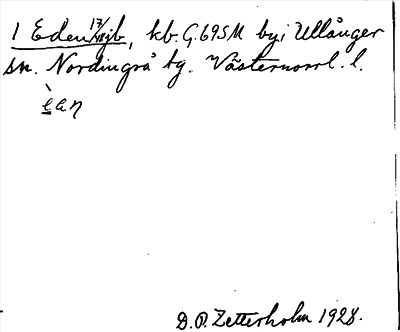 1 Eden 17/48 jb, kb. G.695M by i Ullånger
sn. Nordingrå tg. Västernorrl. l.
èaŋ
D.O. Zetterholm 1928.